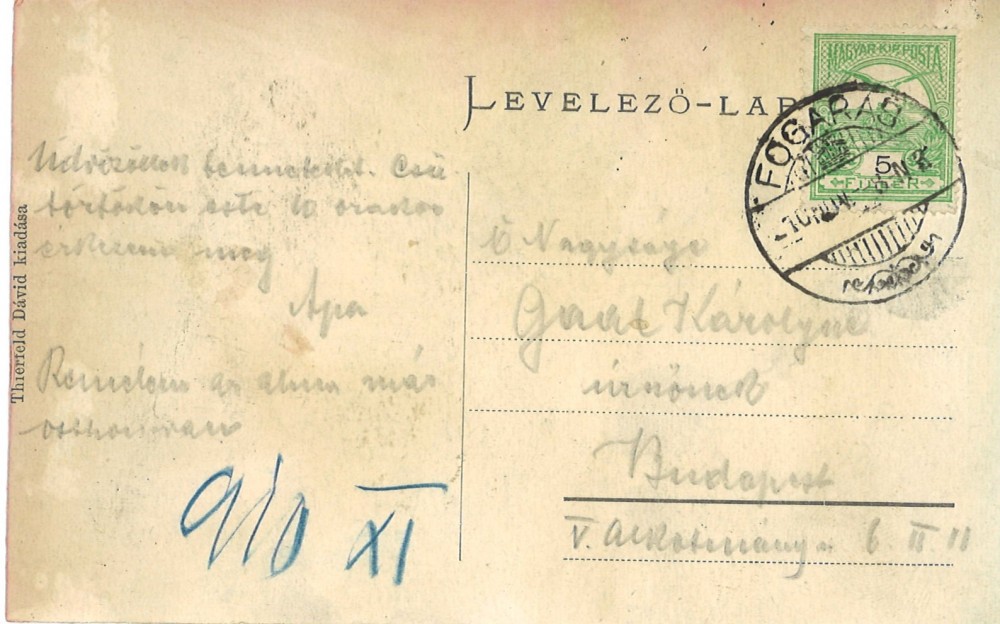 LEVELEZŐ-LAP
MAGYAR KIR. POSTA
5
FILLÉR
FOGARAS
910 NOV
Üdvözöllek benneteket. Csü
törtökön este 10 órakor
érkezem meg
Apa
Remélem az alma már
otthon van
910 XI
Ő Nagysága
Gaal Károlyné
úrnőnek
Budapest
V. Alkotmány u 6 II 11
Thierfeld Dávid kiadása